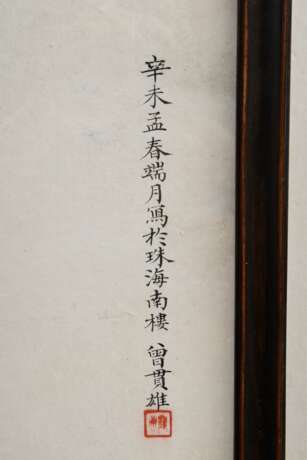 辛未孟春端月寫於珠海南樓 曾貫雄